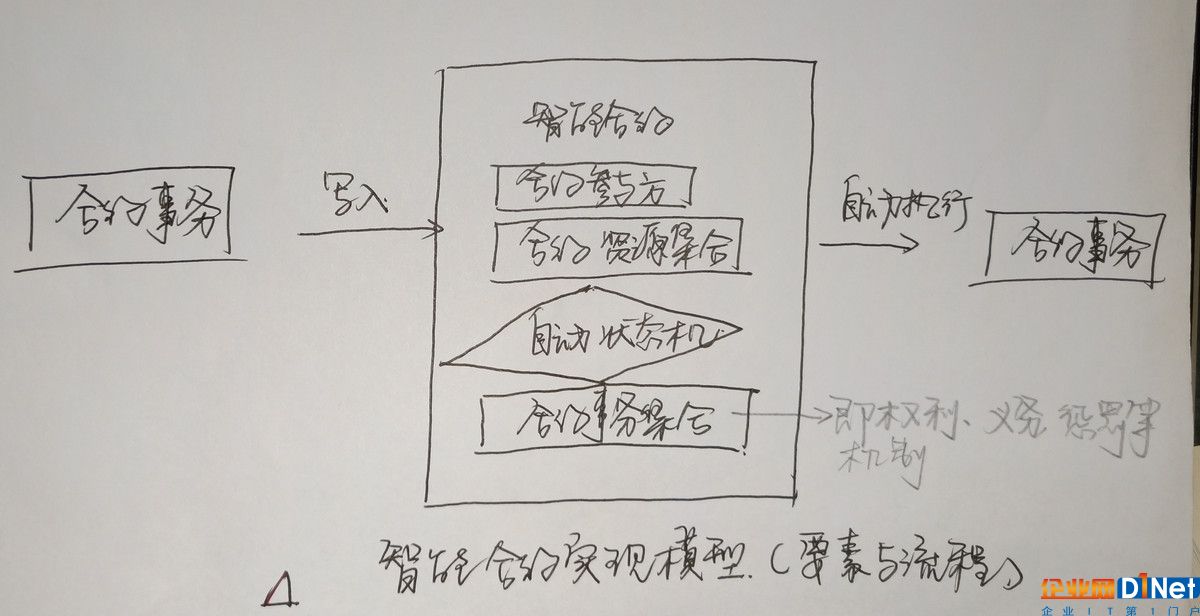 智能合约
合约事务
写入
合约参与方
合约资源集合
自动状态机
合约事务集合
自动执行
合约事务
即权利、义务 惩罚等
机制
智能合约实现模型.(要素与流程)
企业网D1Net
企业IT第1门户